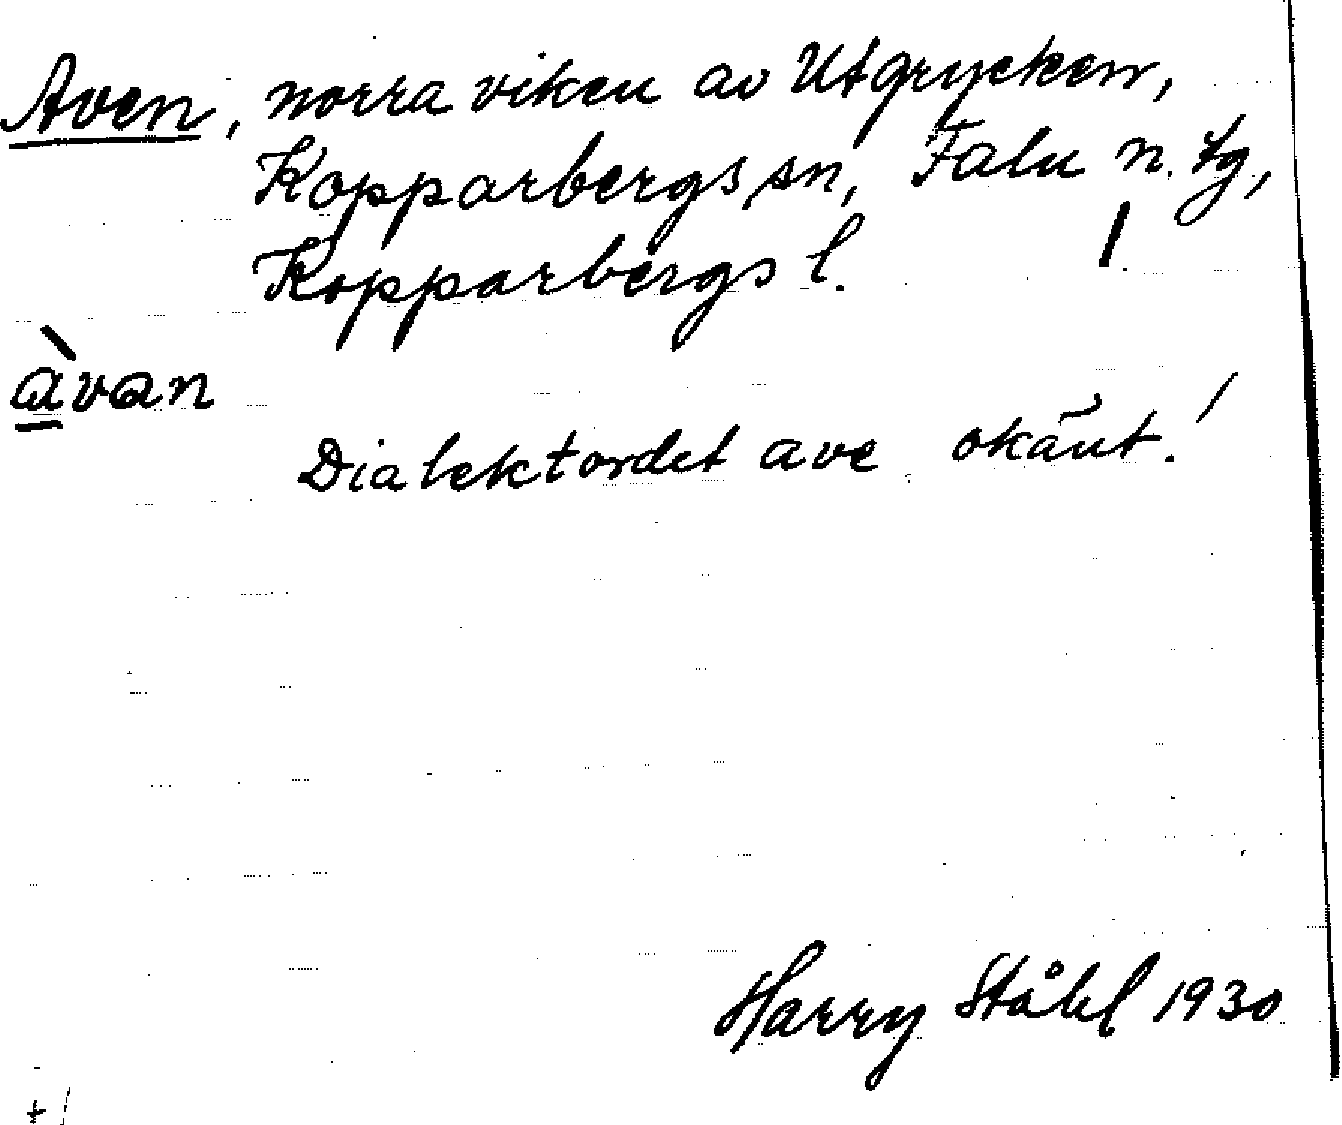 Aven, norra viken av Utgrycken,
Kopparbergs sn, Falu n. tg,
Kopparbergs l. /
àvan
Dialektordet ave okänt. /
Harry Ståhl 1930
+ /